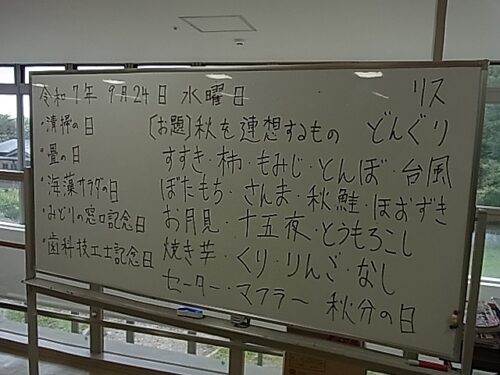 令和7年 9月24日 水曜日
・清掃の日
・畳の日
・海藻サラダの日
・みどりの窓口記念日
・歯科技工士記念日
リス
〔お題〕秋を連想するもの どんぐり
すすき・柿・もみじ・とんぼ・台風
ぼたもち・さんま・秋鮭・ほおずき
お月見・十五夜・とうもろこし
焼き芋・くり・りんご・なし
セーター・マフラー 秋分の日